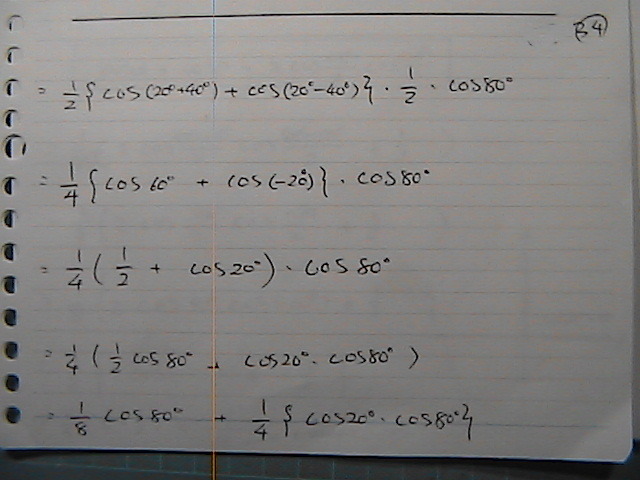 34
= 1/2 { cos(20°+40°) + cos(20°-40°) } · 1/2 · cos80°
= 1/4 { cos60° + cos(-20°) } · cos80°
= 1/4 ( 1/2 + cos20° ) · cos80°
= 1/4 ( 1/2 cos80° + cos20° · cos80° )
= 1/8 cos80° + 1/4 { cos20° · cos80° }